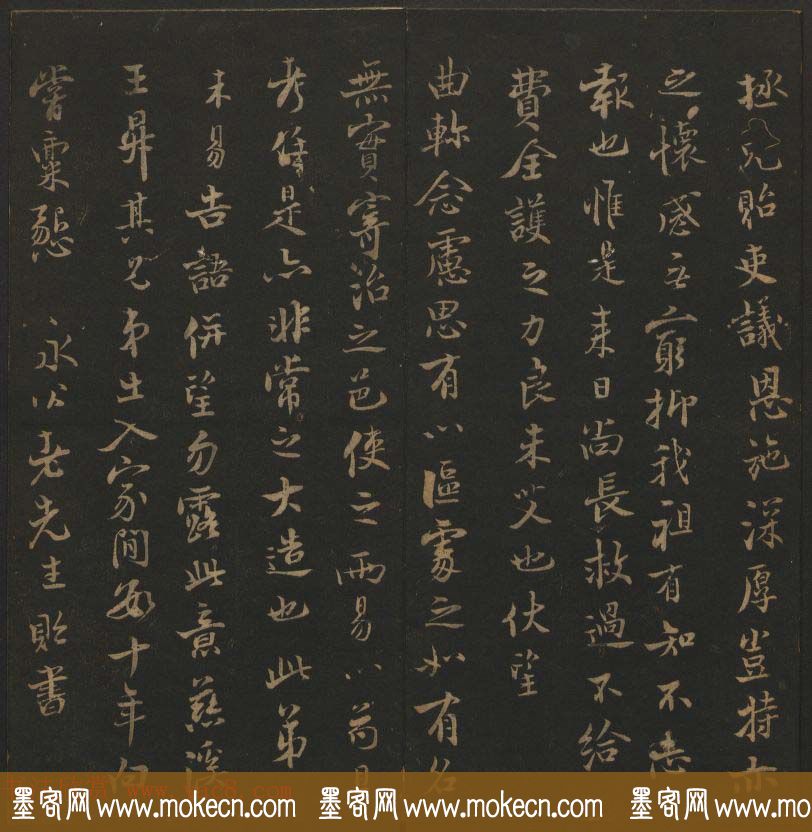 拯兒貽吏議恩施深厚豈特亦
之懷感無窮抑我祖有知不忘
報也惟是来日尚長救過不給
費全護之力良未艾也伏望
曲軫念慮思有以區處之如有名
無實寄治之邑使之兩易以苟
考第是亦非常之大造也此第
未易告語併望勿露此意慈溪
王昇其兄弟出入家間數十年向
嘗稟懇 永公老先生貽書
墨客网 www.mokecn.com 墨客网 www.mokecn.com 墨客网 www.mo